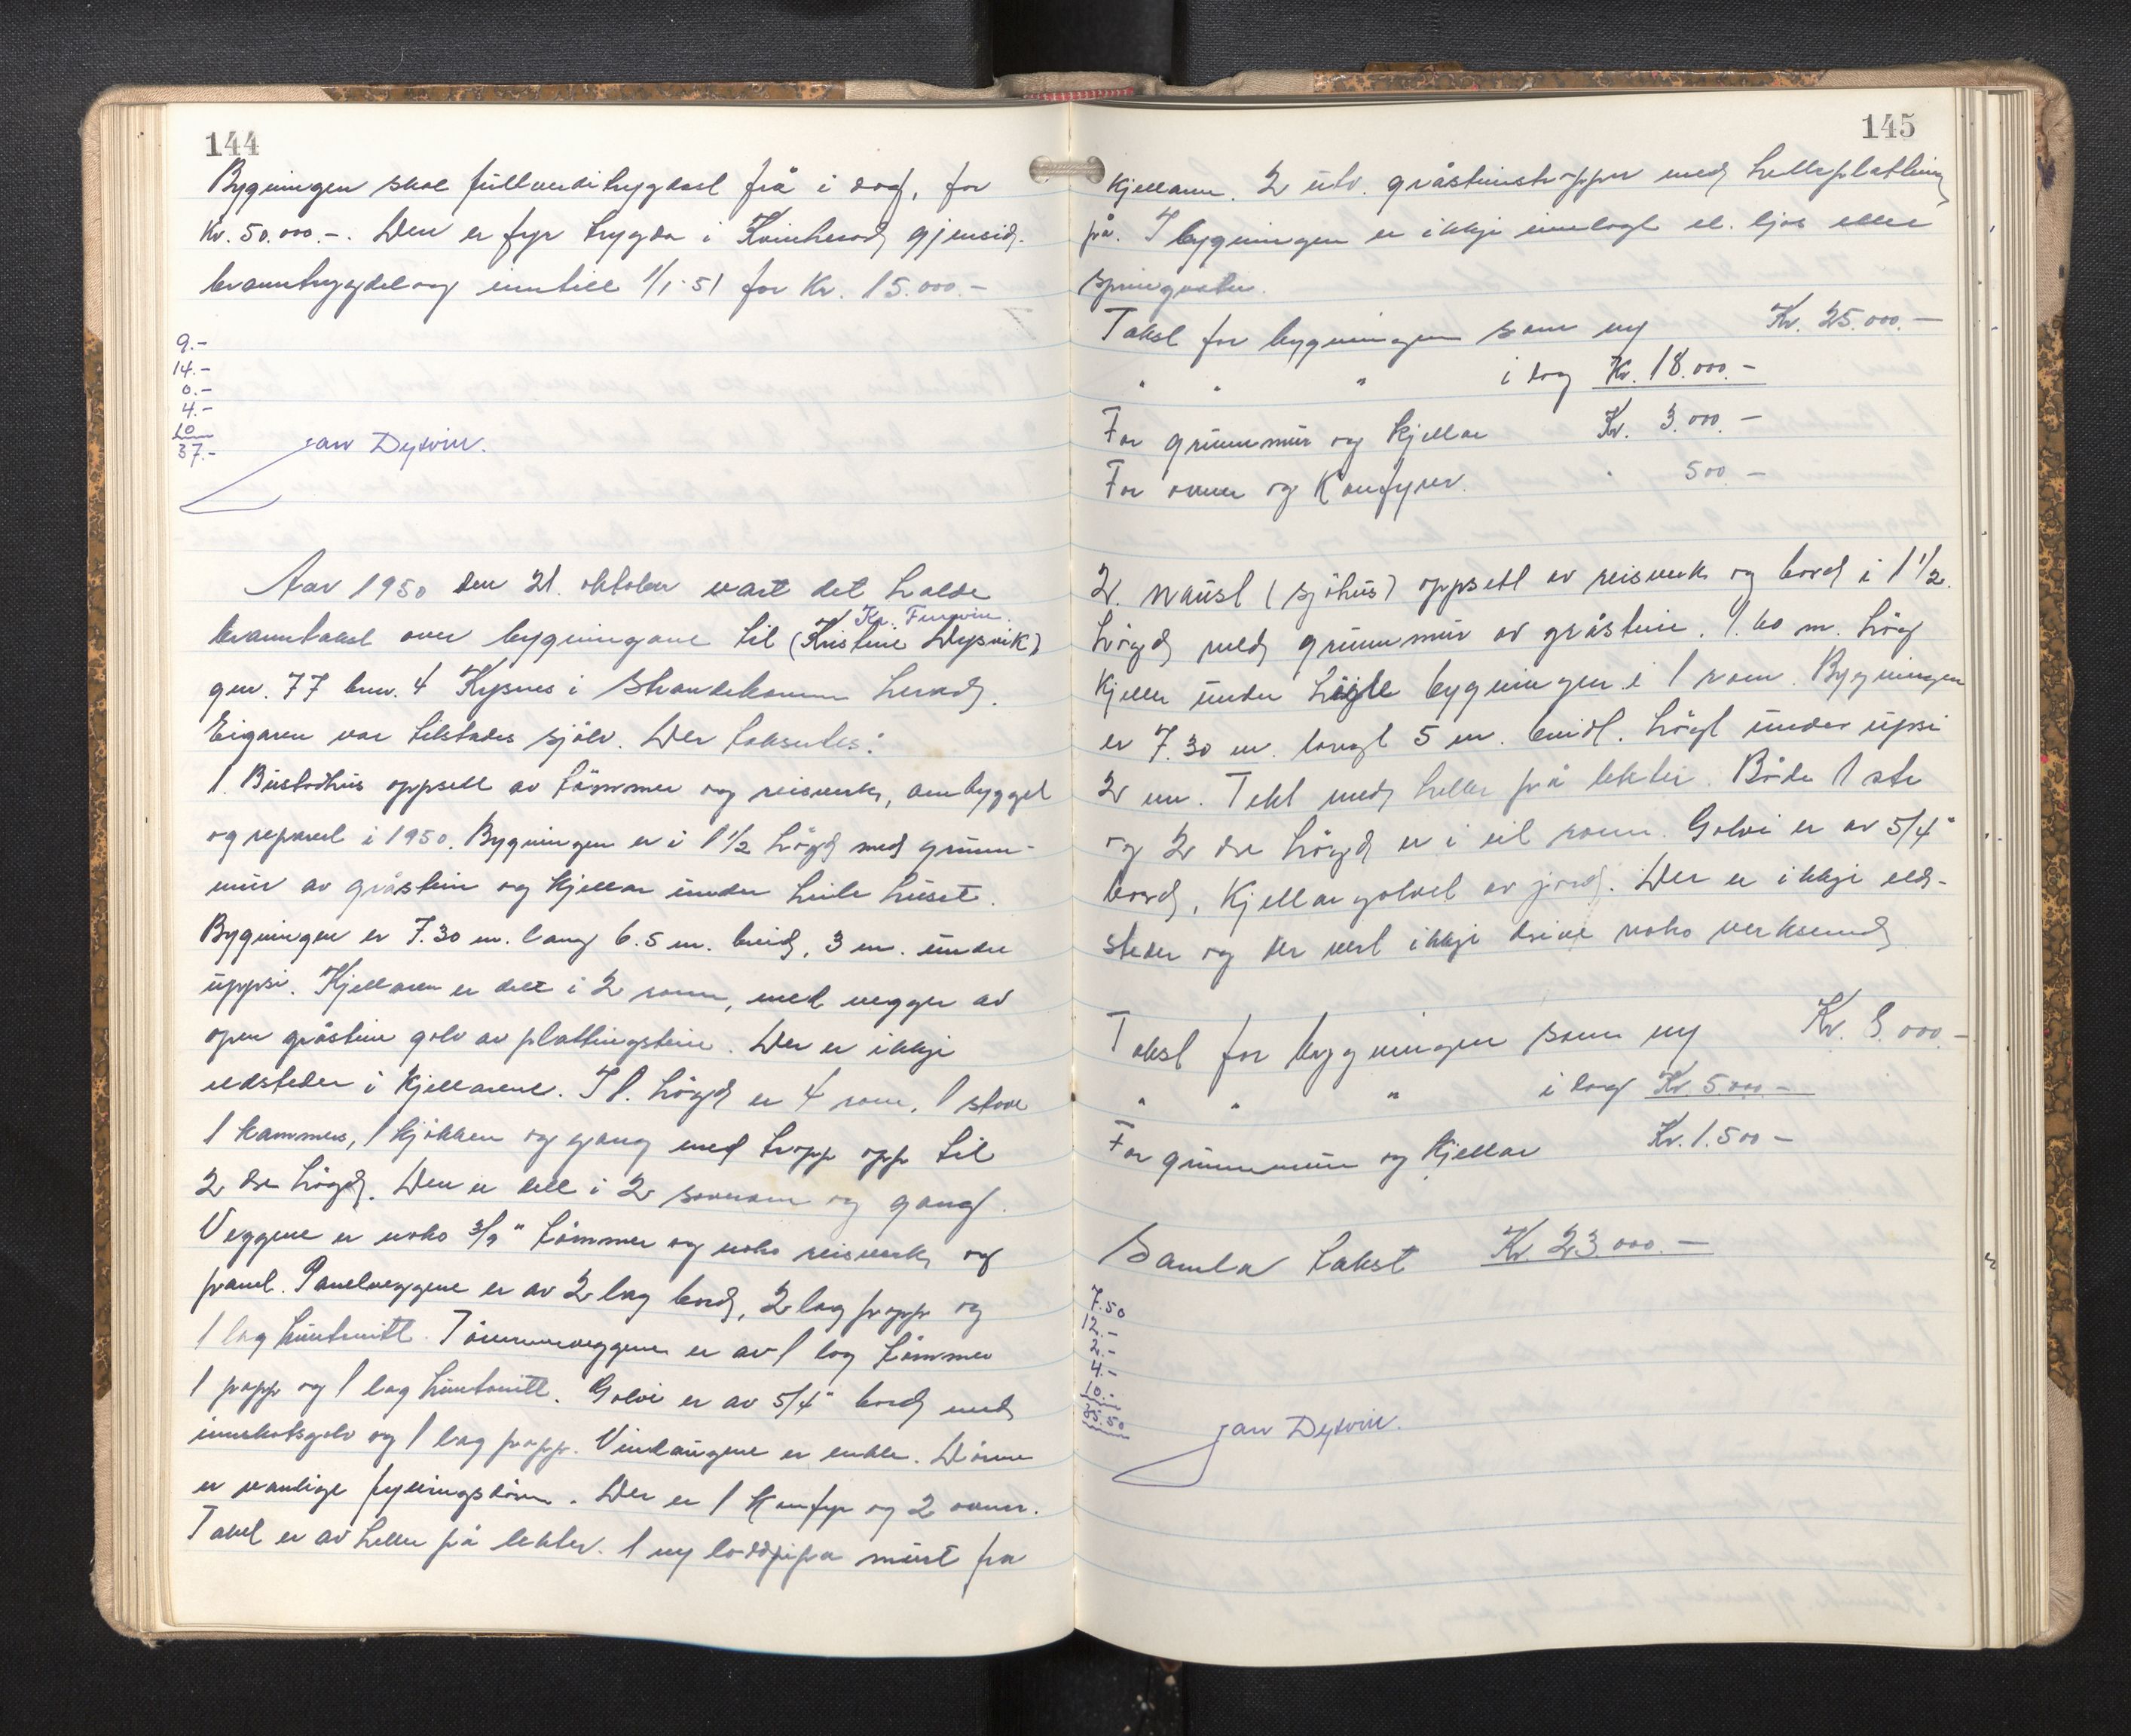 144
Bygningen skal fullverditrygdast frå i dag, for
Kr. 50.000.-. Den er fyr trygda i Kvinherad gjensid.
branntrygdelag inntill 1/1-51 for Kr. 15.000.-
9.-
14.-
0.-
4.-
10
37.-
Jan Dysvik.
Aar 1950 den 21. oktober vart det halde
Kr.
branntakst over bygningane til (Kristine Dysvik)
gnr. 77 brn. 4 Kysnes i Strandebarm herad.
Eigaren var tilstades sjølv. Der taksertes:
1. Bustadhus oppsett av tömmer og reisverk, ombygget
og reparert i 1950. Bygningen er i 1 1/2 högd med grunn-
mur av gråstein og kjellar under heile huset.
Bygningen er 7.30 m. lang 6.5 m. breid, 3 m. under
uppsi. Kjellaren er delt i 2 romm, med vegger av
open gråstein golv av plattingsteine. Der er ikkje
eldsteder i kjellarene. I 1. högd er 4 rom, 1 stove
1 kammers, 1 kjökken og gang med tropp opp til
2 dre högd. Den er delt i 2 soverom og gang.
Veggene er noko 3/9" tömmer og noko reisverk og
panel. Panelveggene er av 2 lag bord, 2 lag papp og
1 lag huntonitt. Tömmerveggene er av 1 lag tömmer
1 papp og 1 lag huntonitt. Golvi er av 5/4" bord med
innskotsgolv og 1 lag papp. Vindaugene er enkle. Dörene
er vanlige fyllingsdörer. Der er 1 komfyr og 2 ovner.
Taket er av heller på lekter. 1 ny loddpipa murt fra
145
kjellaren. 2 utv. gråsteinstrapper med helleplatting
på. I bygningen er ikkje innlagt el. ljos eller
springvatn.
Takst for bygningen som ny Kr. 25.000.-
" " " i dag Kr. 18.000.-
For grunnmur og kjellar Kr. 3.000.-
For ovner og Komfyrer. " 500.-
2. naust (sjöhus) oppsett av reisverk og bord i 1 1/2.
högd med grunnmur av gråstein. 1.60 m. hög
kjeller under heile bygningen i 1 rom. Bygningen
er 7.30 m. langt 5 m. breidt. högt under upsi
2 m. Tekt med heller på lekter. Både 1 ste
og 2 dre högd er i eit romm. Golvi er av 5/4"
bord, Kjellargolvet av jord. Der er ikkje eld-
steder og der vert ikkje drive noko verksemd
Takst for bygningen som ny Kr. 9.000.-
" " " i dag Kr. 5.000.-
For grunnmur og kjellar Kr. 1.500-
Samla takst Kr. 23.000.-
7.50
12.-
2.-
4.-
10.-
35.50
Jan Dysvik.